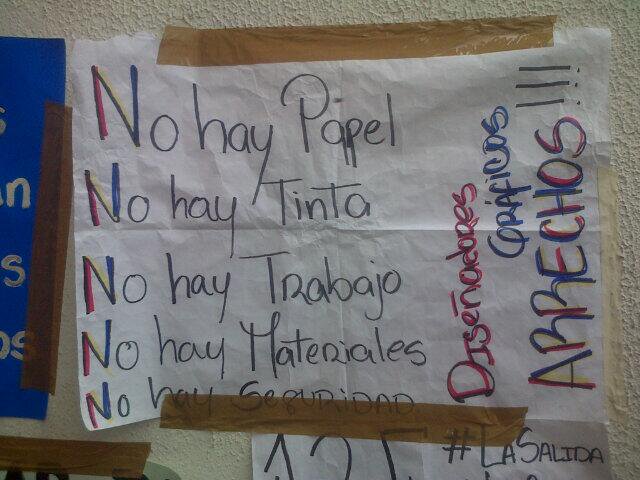 No hay Papel
No hay Tinta
No hay Trabajo
No hay Materiales
No hay Seguridad
Diseñadores
Gráficos
ARRECHOS!!!
#LaSalida